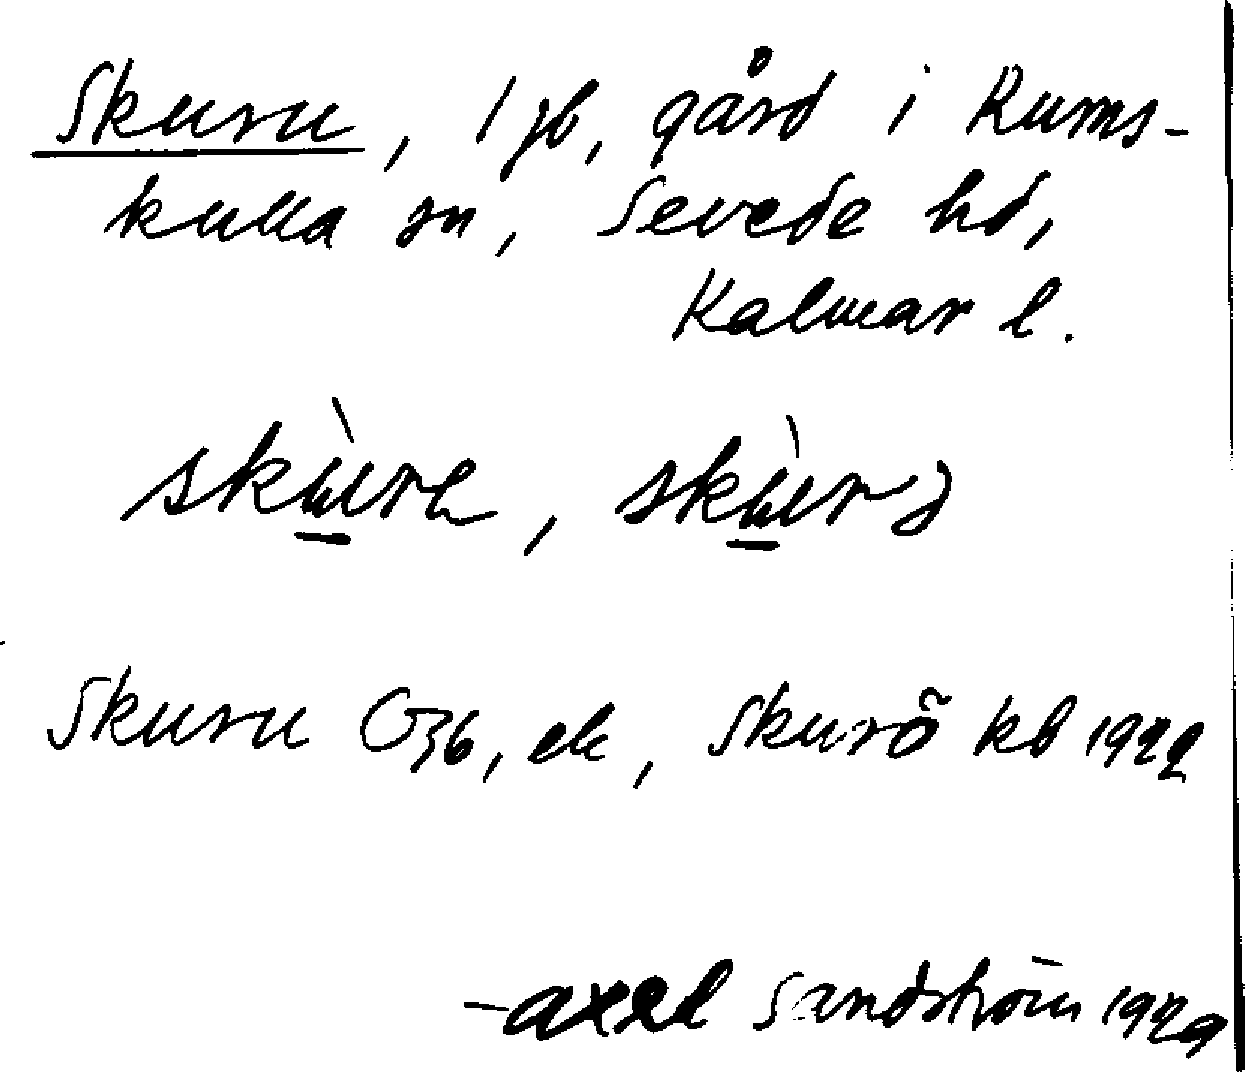 Skuru, 1 jb, gård i Rums-
kulla sn, Sevede hd,
Kalmar l.
Skuru G36, ek, Skurö kb 1922
Axel Sandström 1929